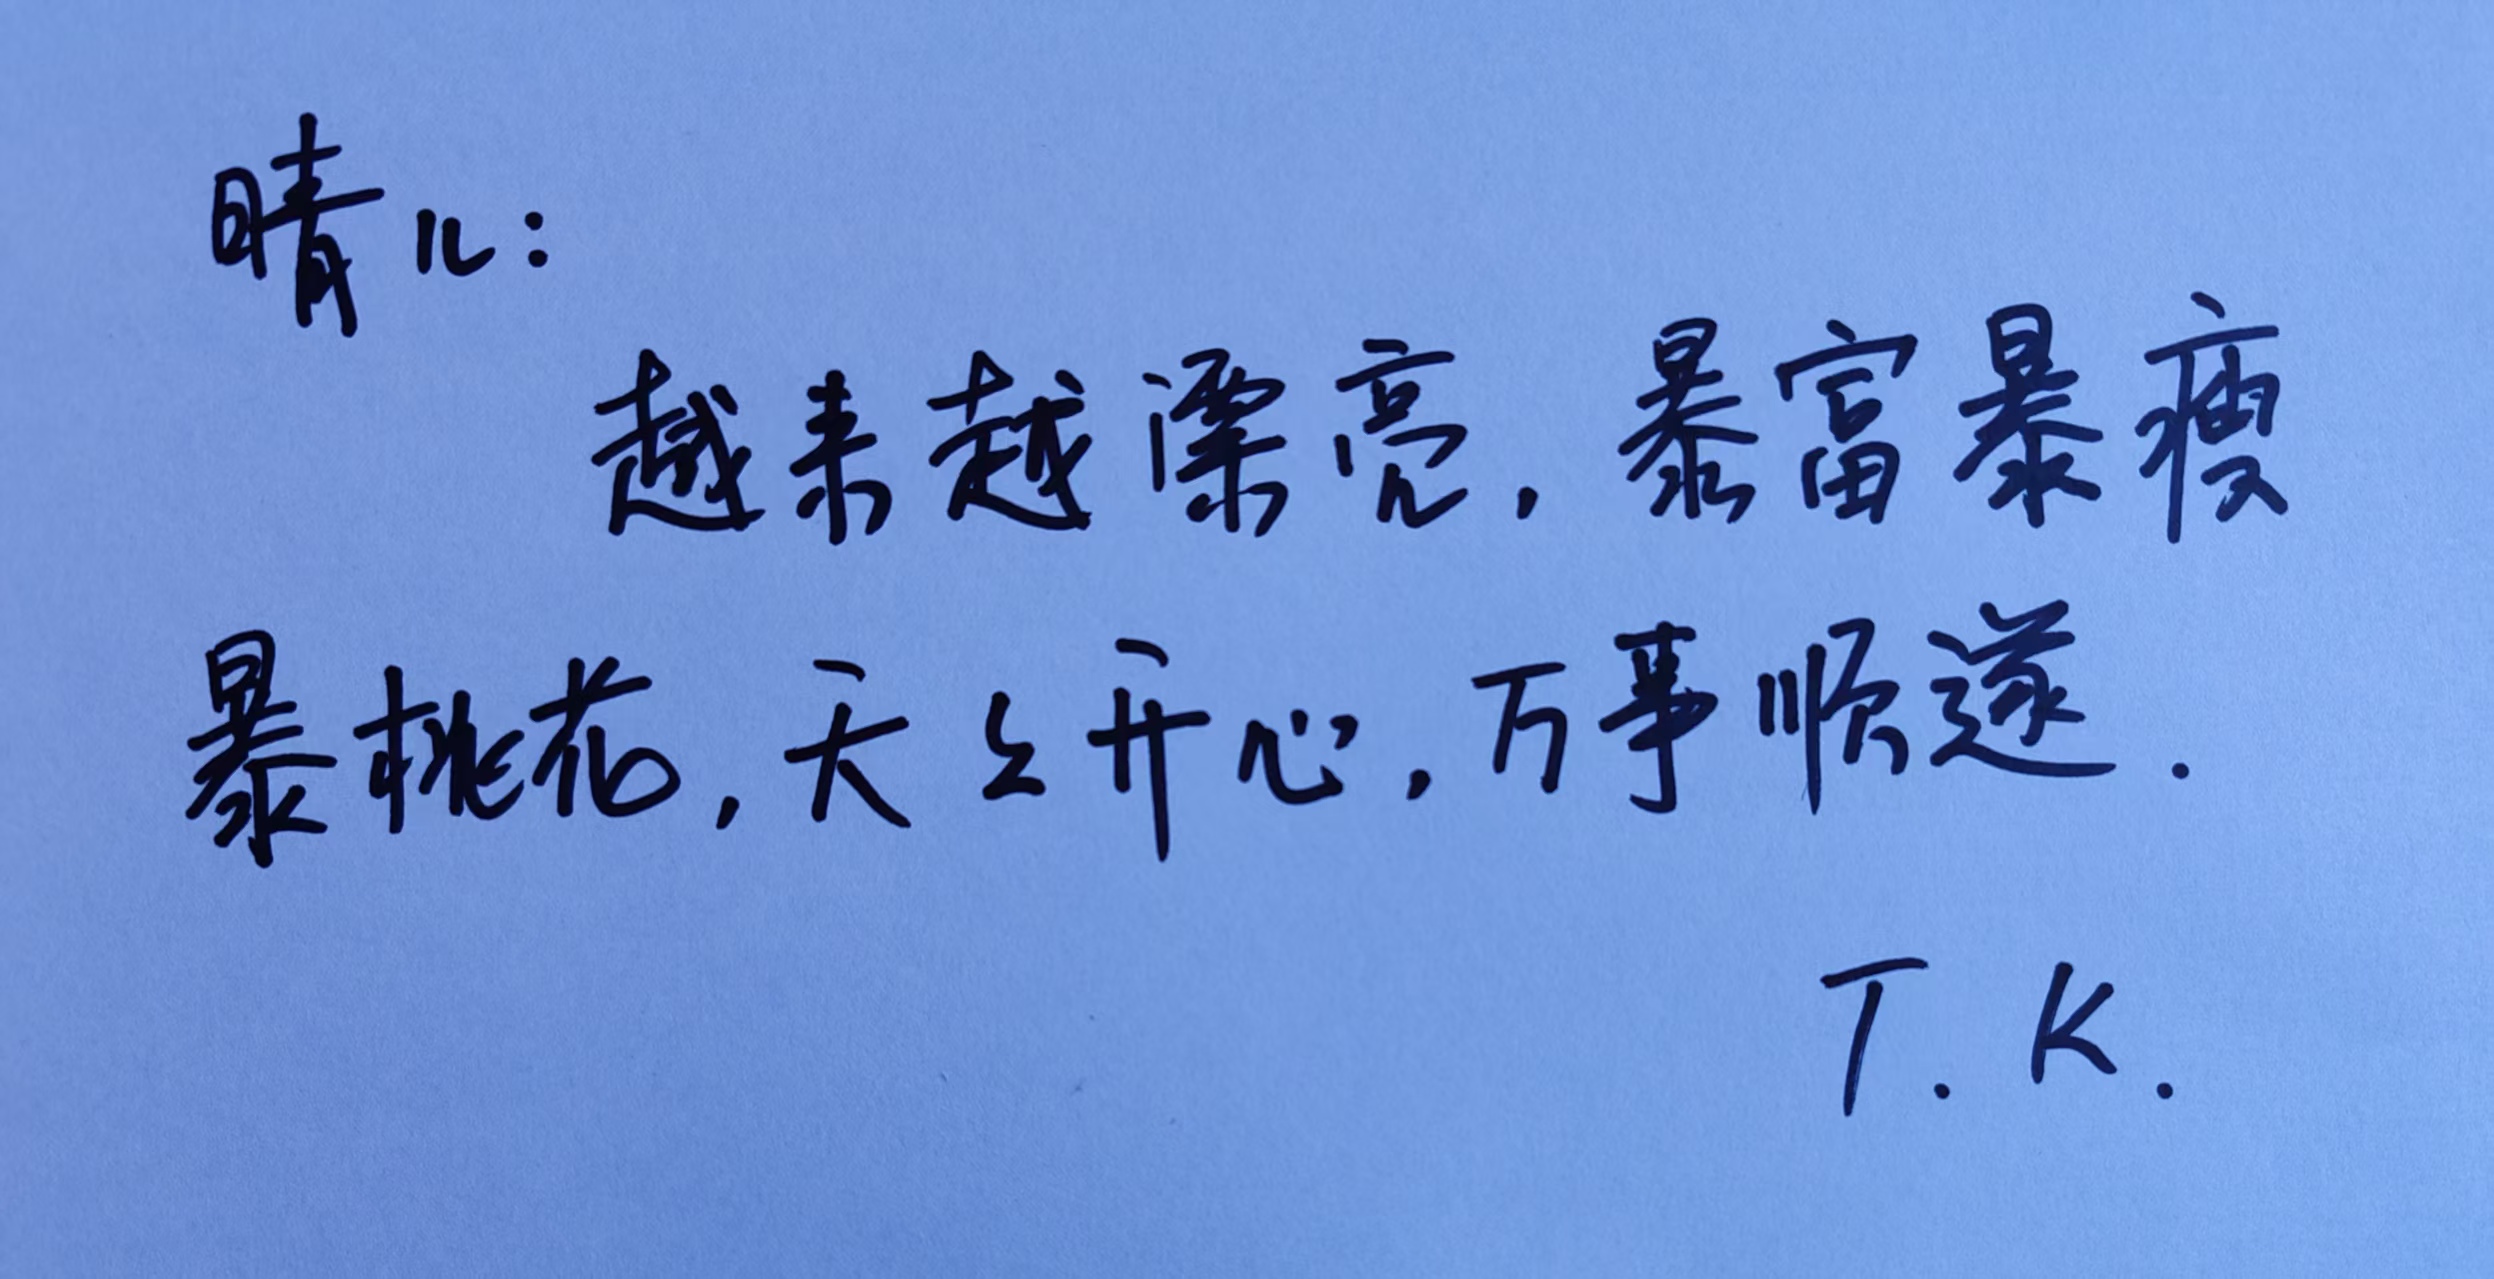 晴儿:
越来越漂亮,暴富暴瘦
暴桃花,天々开心,万事顺遂.
T.K.